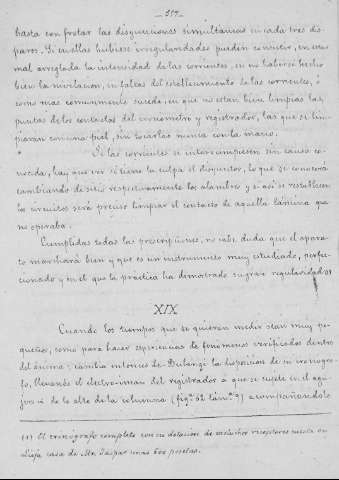 -217-
basta con frotar las disyunciones simultáneas en cada tres dis-
paros. Si en ellas hubiese irregularidades pueden consistir, en estar
mal arreglada la intensidad de las corrientes, en no haberse hecho
bien la nivelacion, en faltas del establecimiento de las corrientes, ó
como mas comunmente sucede, en que no estan bien limpias las
puntas de los contactos del cronometro y registrador, las que se lim-
piarán con una piel, sin tocarlas nunca con la mano.
Si las corrientes se interrumpiesen sin causa co-
nocida, hay que ver si tiene la culpa el disyuntor, lo que se conocerá
cambiando de sitio respectivamente los alambres y si así se restablecen
los circuitos será preciso limpiar el contacto de aquella lámina que
no operaba.
Cumplidas todas las prescripciones, no cabe duda que el apara-
to marchará bien y que es un instrumento muy estudiado, perfec-
cionado y en el que la práctica ha demostrado suma regularidad (1)
XIX
Cuando los tiempos que se quieran medir sean muy pe-
queños, como para hacer esperiencias de fenómenos verificados dentro
del ánima; cambia entonces Le-Boulangé la disposicion de su cronógra-
fo, llevando el electro-iman del registrador á que se sujete en el agu-
jero á de lo alto de la columna (fig.ª 52 lám.ª 9) acompañándole
(1) El cronógrafo completo con su dotacion de estuches receptores cuesta en
Lieja casa de Mr. Jaspar unas 600 pesetas.